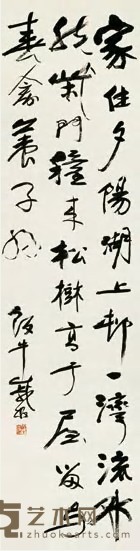 家住夕陽湖上邨一灣流水
繞柴門種來松樹高于屋留與
春禽養子孫
飯牛
艺术网